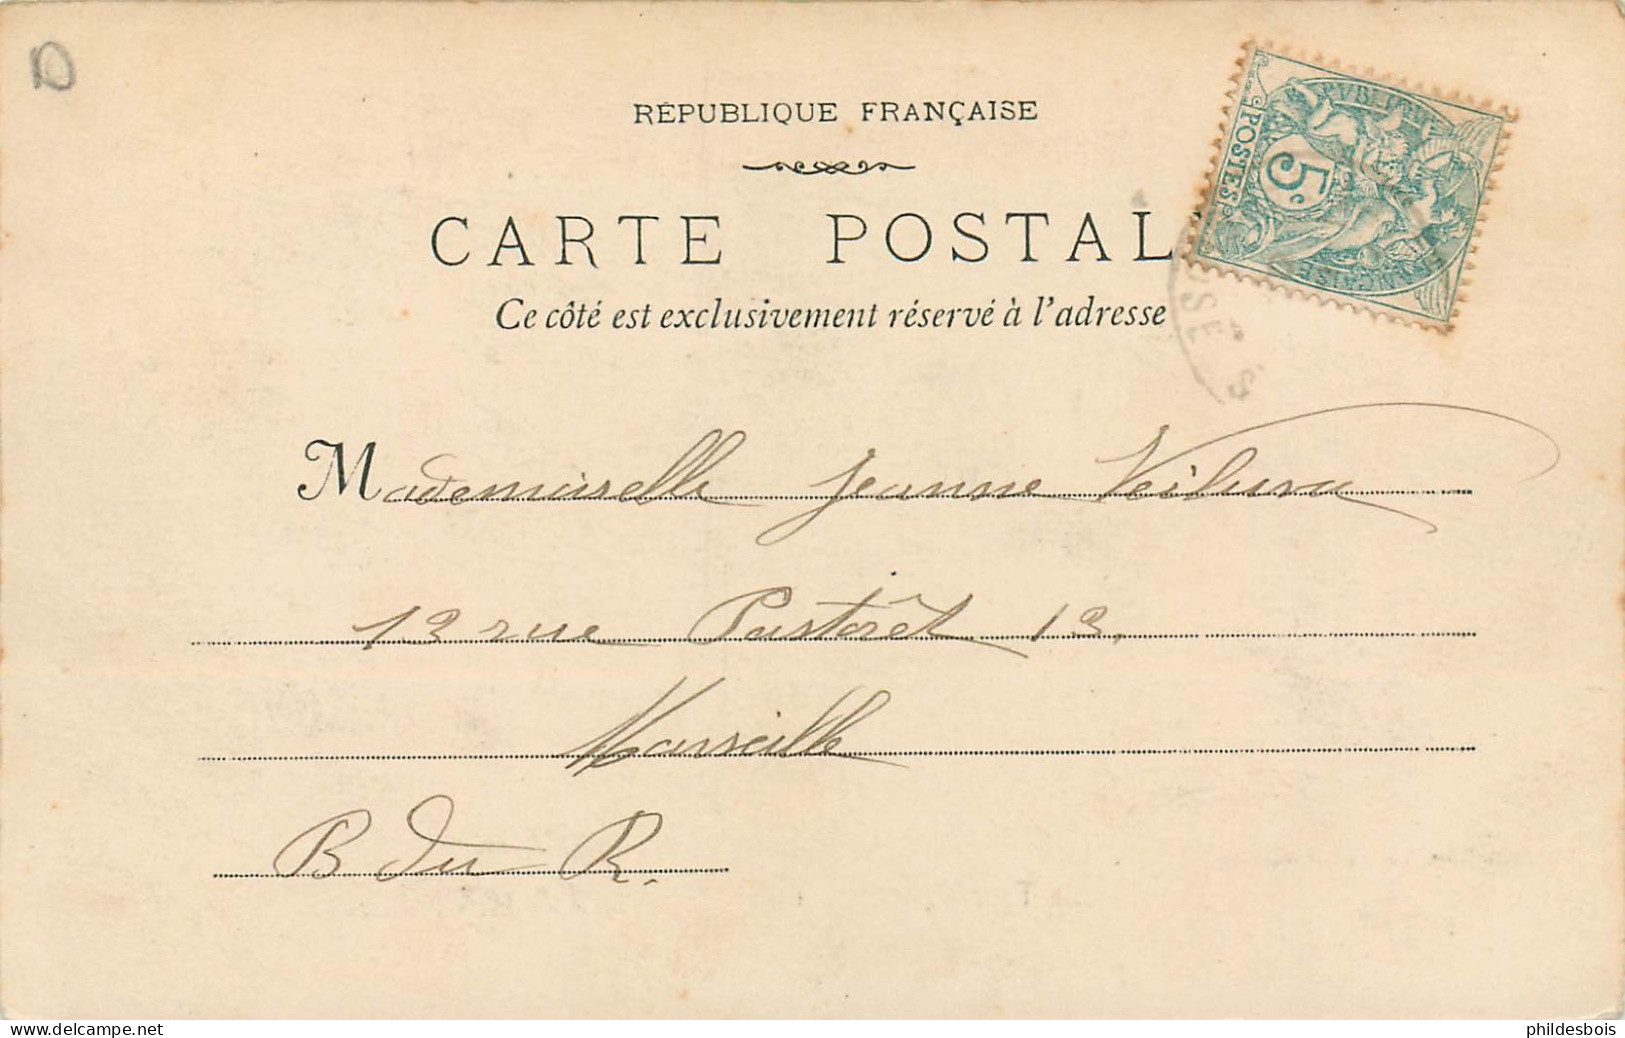 RÉPUBLIQUE FRANÇAISE
CARTE POSTAL
Ce côté est exclusivement réservé à l'adresse
POSTES
5c
Mademoiselle Jeanne
12 rue Pastoret 12,
Marseille
B du R.
www.delcampe.net
phildesbois